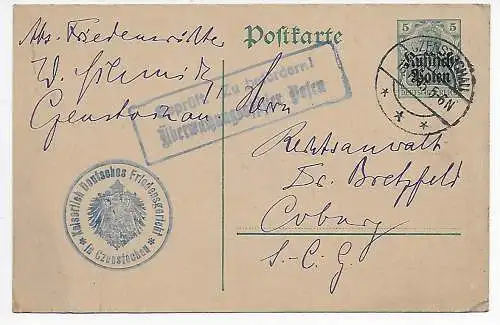 Postkarte
5
Abs. Friedensrichter
W. Schmidt,
Czenstochau
Geprüft! Zu befördern!
Überwachungsoffizier Posen
CZENSTOCHAU
Russisch-
Polen
Herrn
Rechtsanwalt
Dr. Bretzfeld
Coburg
S.-C. G.
Kaiserlich Deutsches Friedensgericht
in Czenstochau